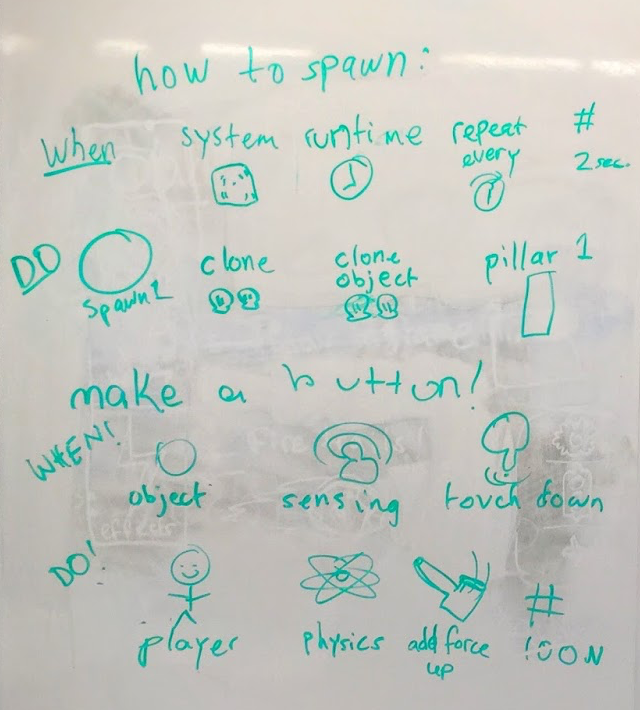 how to spawn:
When system runtime repeat every # 2 sec.
DO spawn 1 clone clone object pillar 1
make a button!
WHEN! object sensing touch down
DO! player physics add force up # 100N
effects